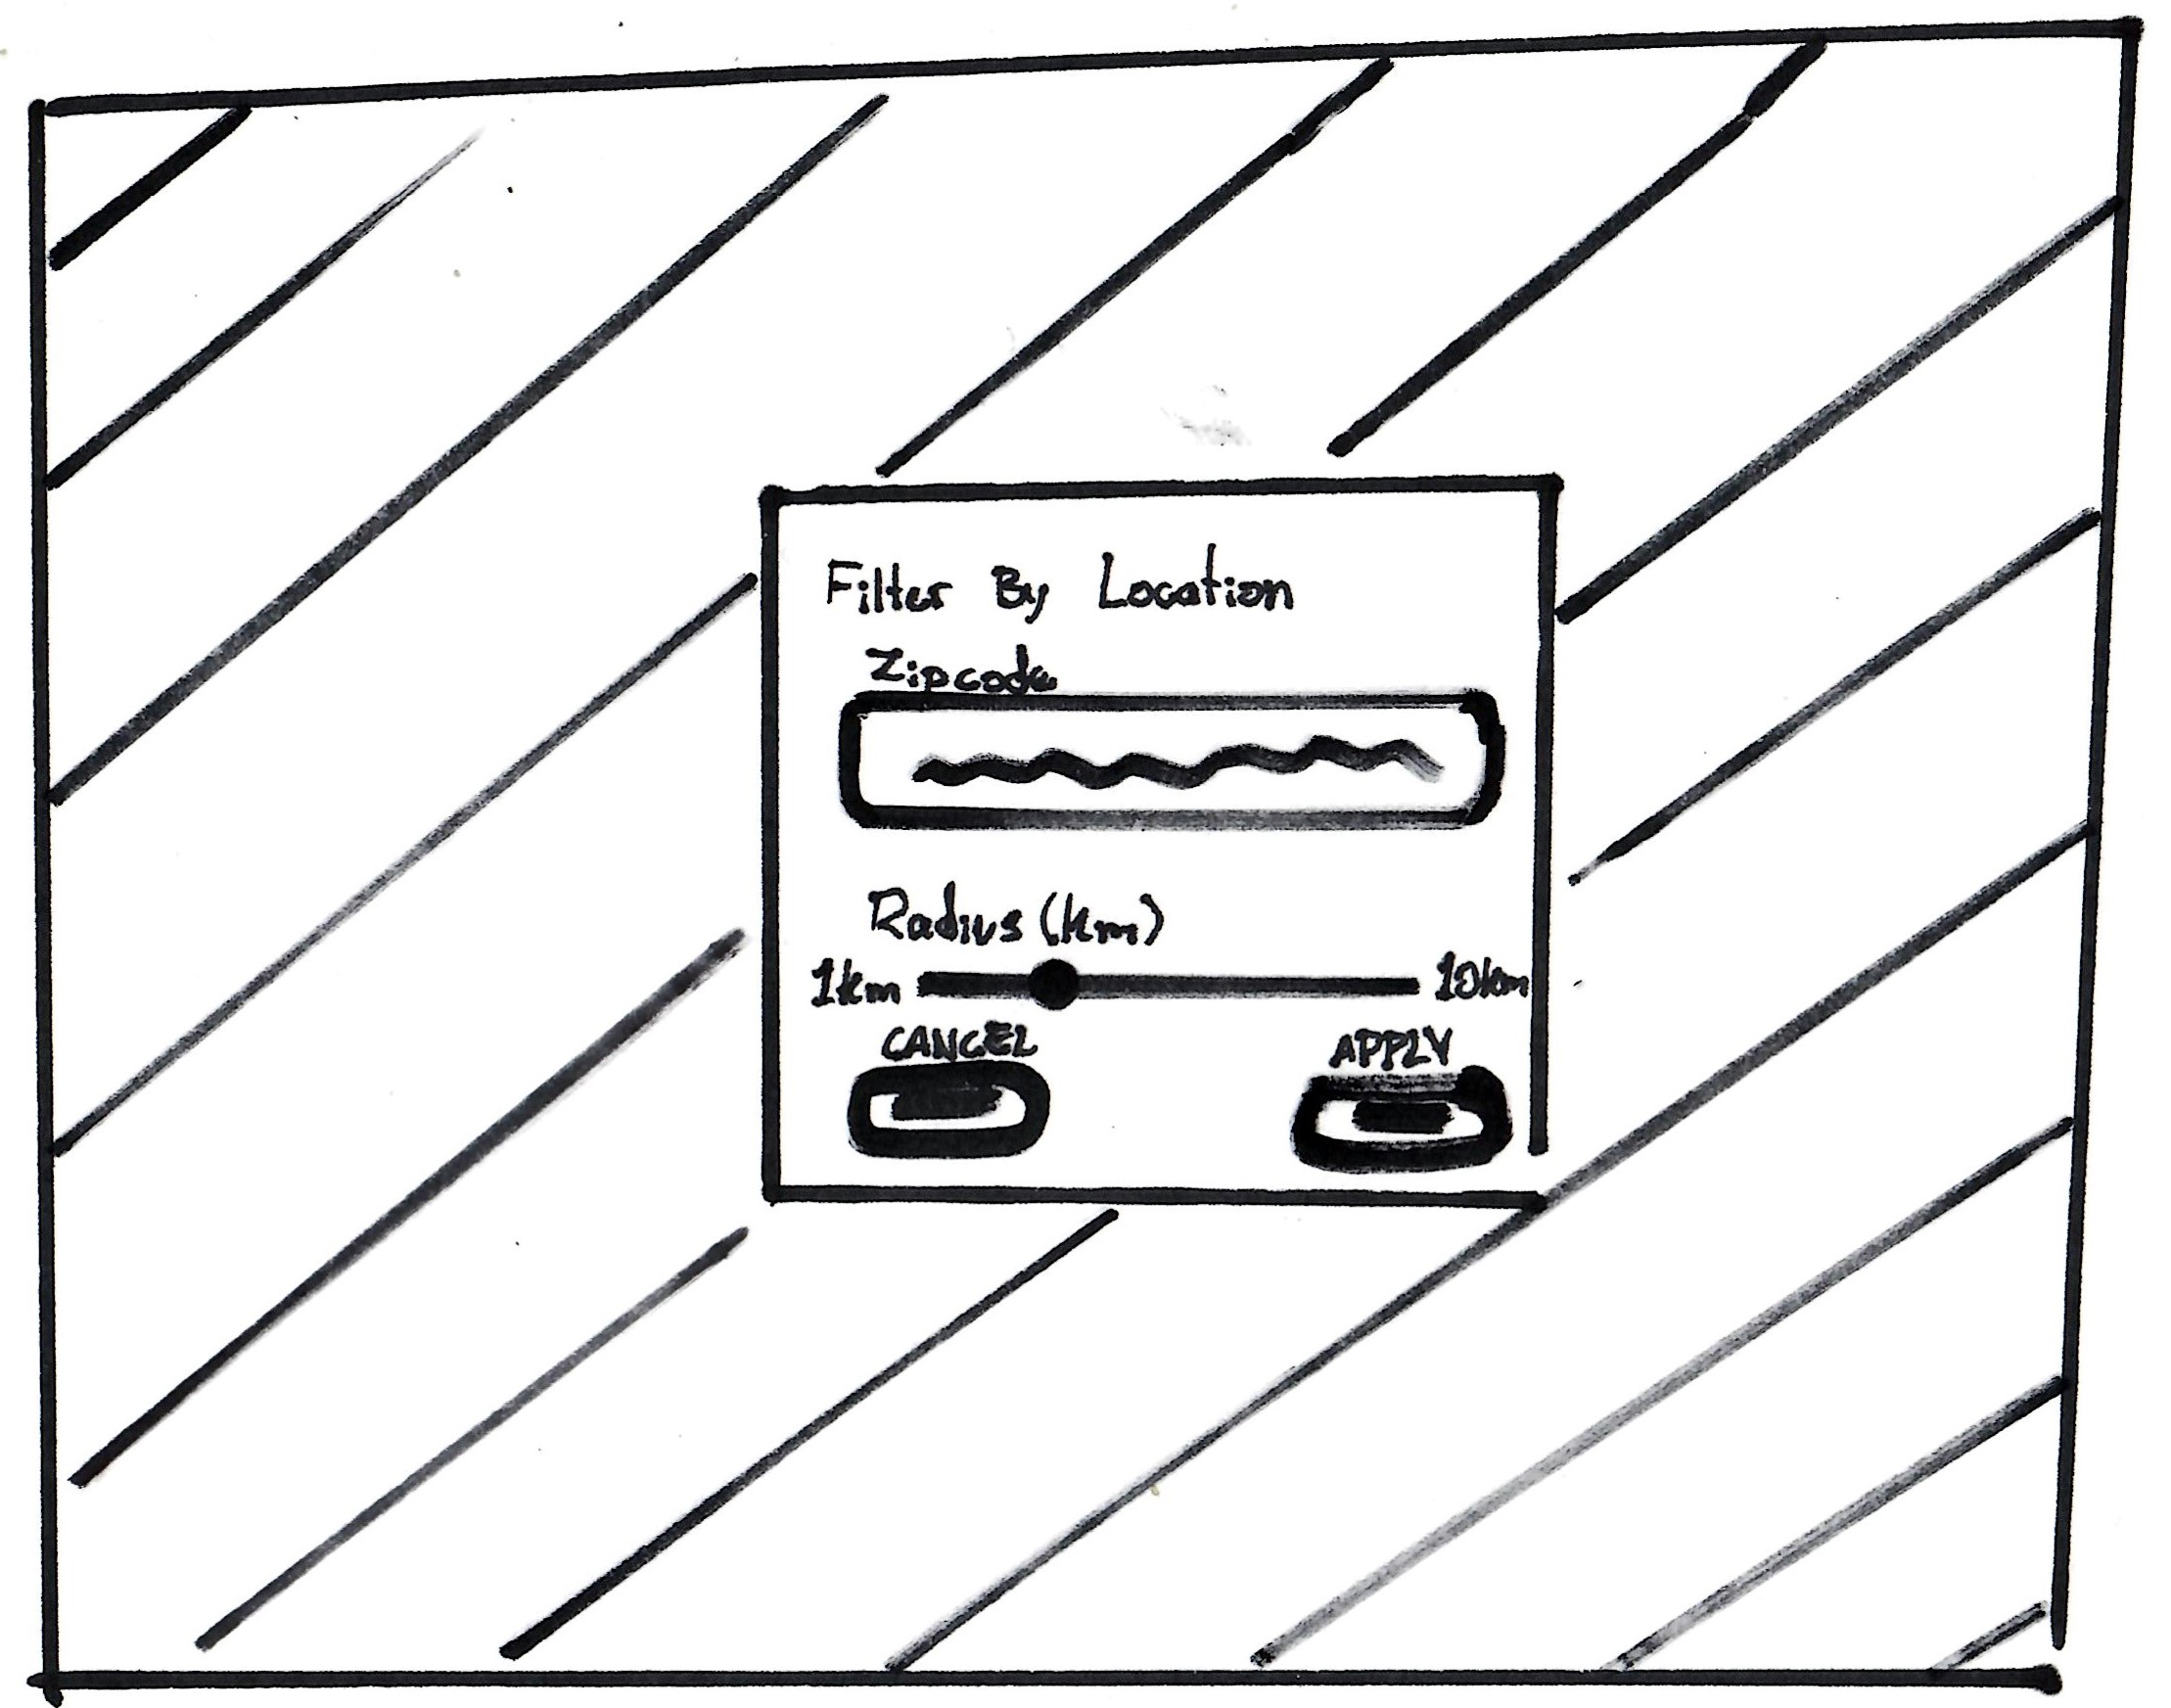 Filter By Location
Zipcode
Radius (km)
1km 10km
CANCEL APPLY